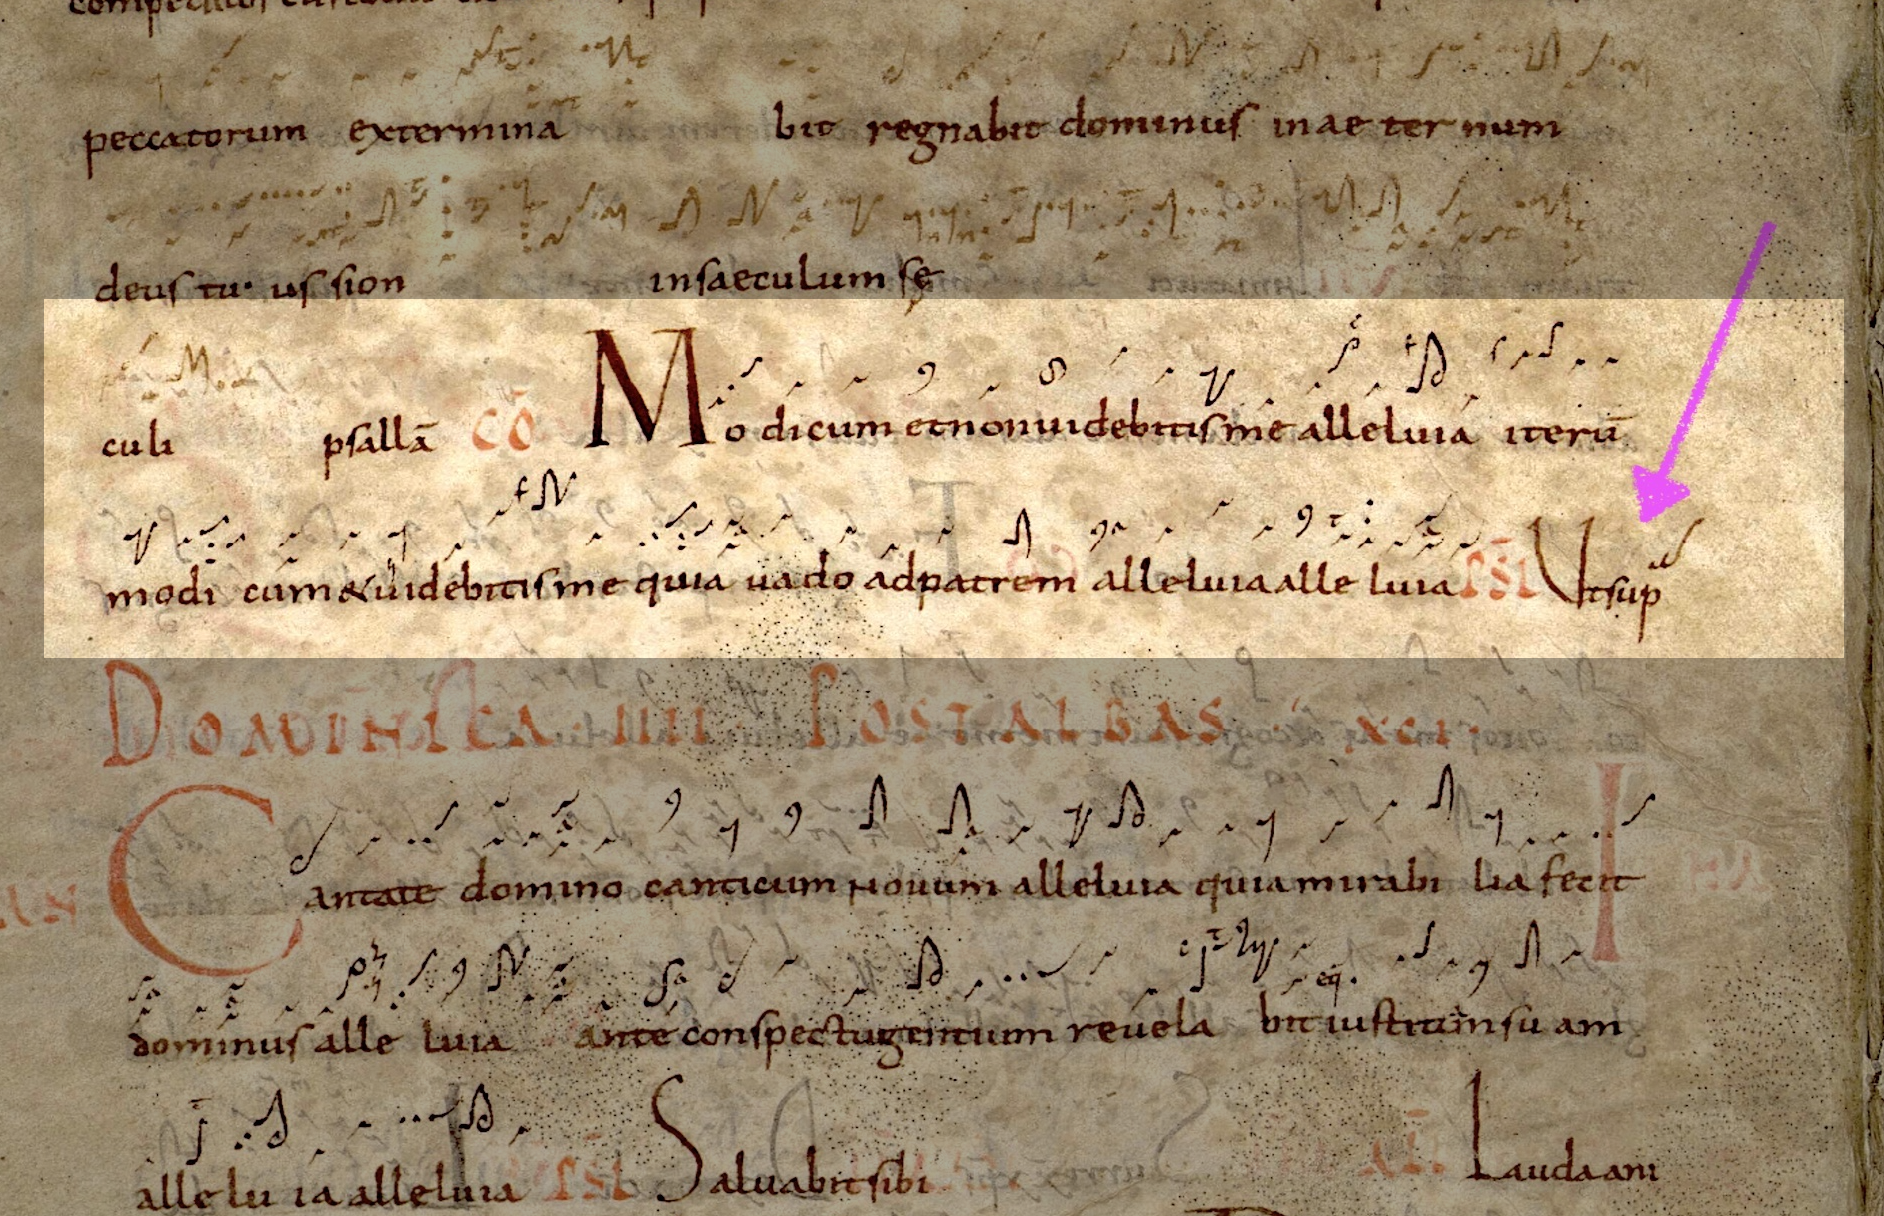 peccatorum extermina bit regnabit dominus in ae ter num
deus tu us sion in saeculum sę
culi psallā CŌ Modicum et non uidebitis me alleluia iterū
modi cum & uidebitis me quia uado ad patrem alleluia alle luia PSL Ut sup
DOMINICA IIII POST ALBAS
Cantate domino canticum nouum alleluia quia mirabi lia fecit
dominus alle luia ante conspectu gentium reuela bit iustitiam su am
alle lu ia alleluia PSL Saluabit sibi Lauda ani